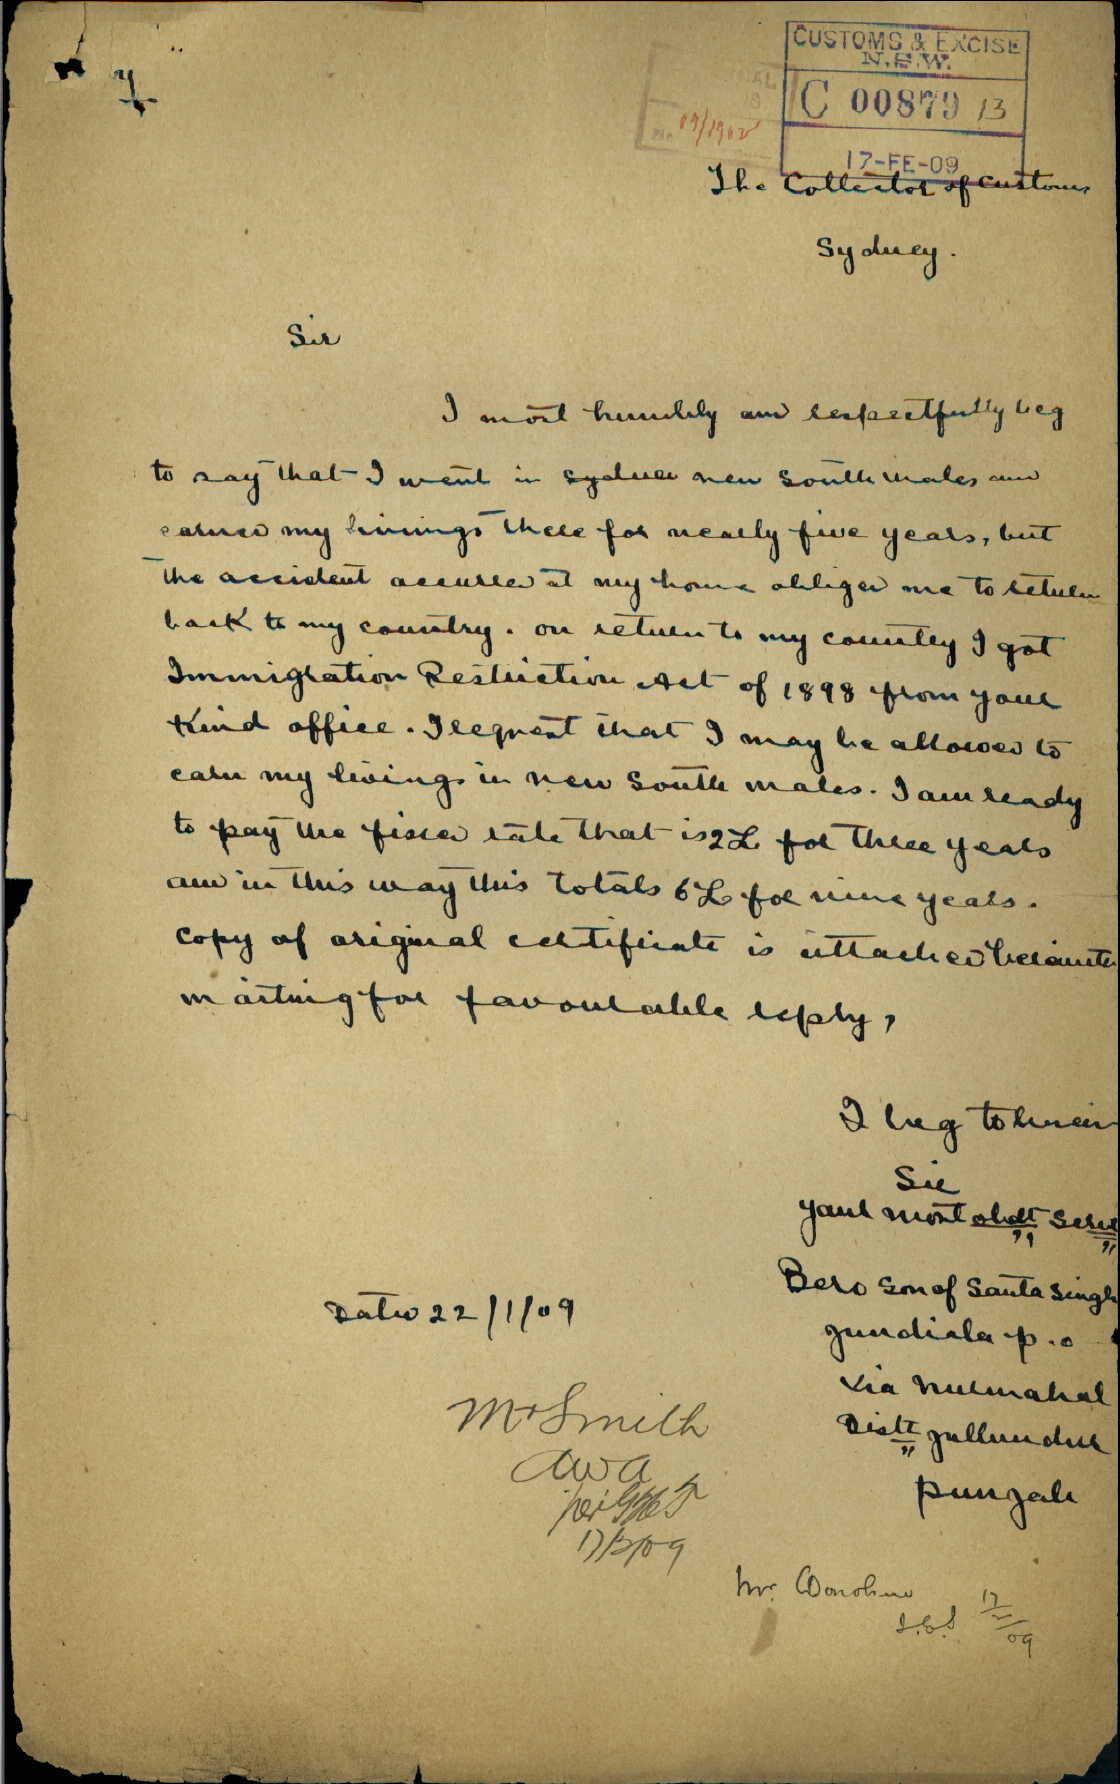 CUSTOMS & EXCISE
N.S.W.
C 00879 13
09/1902
17-FE-09
The Collector of Customs
Sydney.
Sir
I most humbly and respectfully beg
to say that I went in Sydney new South wales and
earned my livings there for nearly five years, but
the accident accurred at my home obliged me to return
back to my country. on return to my country I got
Immigration Restriction Act of 1898 from your
Kind office. I request that I may be allowed to
earn my livings in new South wales. I am ready
to pay the fixed rate that is 2£ for three years
and in this way this totals 6£ for nine years.
Copy of original certificate is attached
waiting for favourable reply,
I beg to
Sir
your most obdt
Bero son of Santa Singh
Dated 22/1/09
gundiala p.o
via nurmahal
Distt jullundur
punjab
Mr Smith
AWA
per
17/2/09
Mr. Donohue
17/2/09